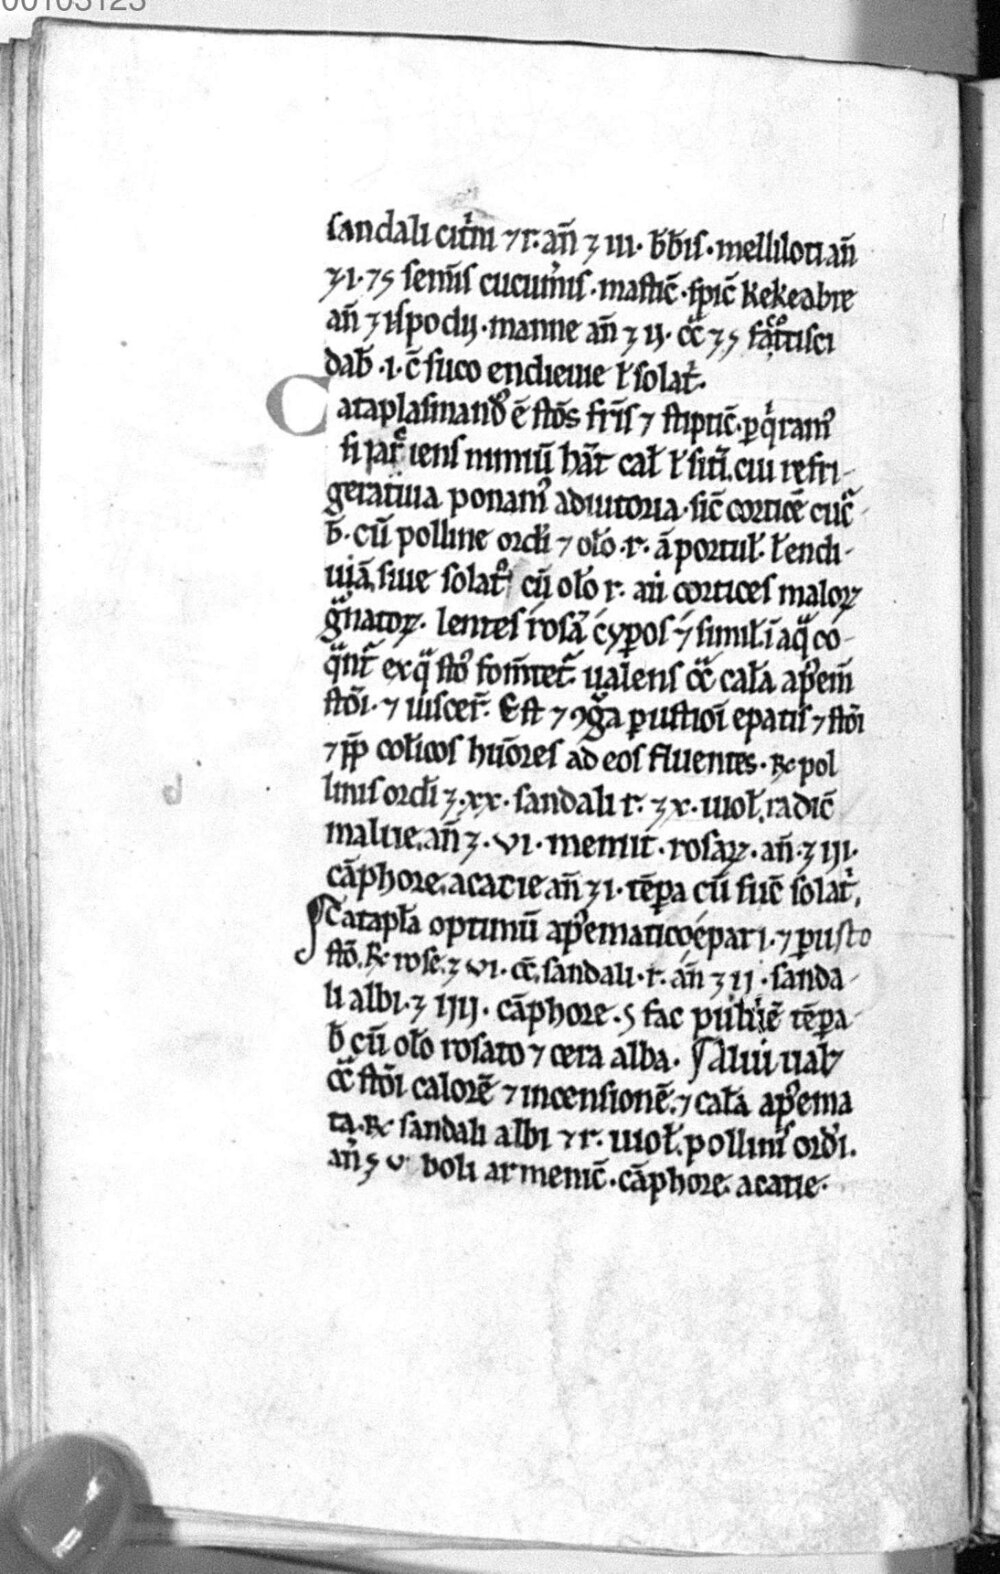 00103123
sandali citͥni ⁊ r. añ ʒ iii. b̄b̄is. melliloti añ
ʒ. i. ⁊ s̄ semīs cucum̄is. mastic̄. spic̄ kekeabre
añ ʒ i spodij. manne añ ʒ ij. cc̄ ʒ s̄
dab̄. i. c̄ suco endiuie ł solat͛.
Cataplasmand᷒ ē stōs fr̄is ⁊ stiptic̄.
iens nimiū hāt cał ł sitī. cui refri-
geratiua ponam᷒ adiutoria. sic̄ corticē cuc̄-
b̄. cū polline ordi ⁊ oło. r. ā portuł. ł endi-
uiā, siue solat͛ cū oło r. añ cortices maloꝝ
gͣnatoꝝ. lentes rosā cyꝑos ⁊ simił ī aqͣ co-
qͣnt᷑ exqͣ sto᷒ fom̄tet᷑. ualens cc̄ cała ap᷒em̄
stōi. ⁊ uiscer̄. Est ⁊ ꝯgͣa ꝑustioī epatis ⁊ stōi
⁊ pp̄ colicos hūores ad eos fluentes. ℞ pol
linis ordi ʒ. xx. sandali r. ʒ x. uioł. radic̄
maluie. añ ʒ. vi. memit. rosaꝝ. añ. ʒ iij.
cāphore. acacie añ ʒ i. tēꝑa cū suc̄ solat͛.
¶ Catapła optimū ap᷒ematico epari. ⁊ ꝑusto
stō. ℞ rose. ʒ vi. cc̄. sandali. r. añ ʒ ij. sanda-
li albi. ʒ iiij. cāphore. s̄ fac puluē tēꝑa-
b̄ cū oło rosato ⁊ cera alba. ¶ Alĩud ual᷑
cc̄ stōi calorē ⁊ incensionē. ⁊ cała ap᷒ema
ta. ℞ sandali albi ⁊ r. uioł. pollinis ordi.
añ ʒ v boli armenic̄. cāphore. acatie.